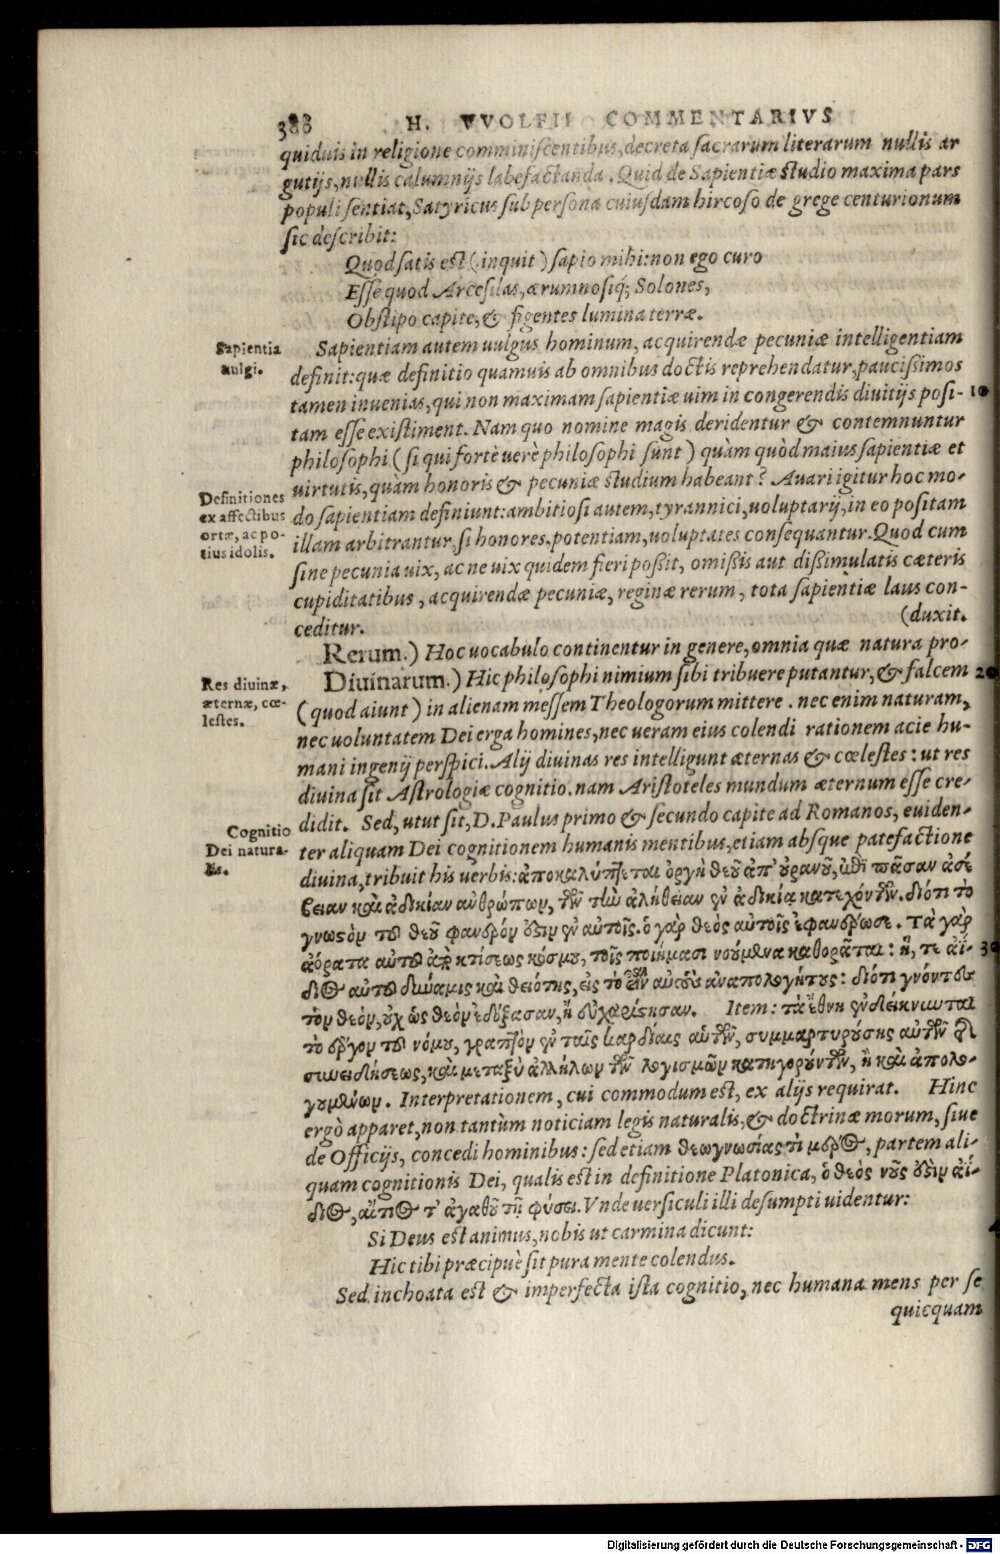 388 H. VVOLFII COMMENTARIVS
quiduis in religione comminiscentibus, decreta sacrarum literarum nullis ar
gutijs, nullis calumnijs labefactanda. Quid de Sapientiæ studio maxima pars
populi sentiat, Satyricus sub persona cuiusdam hircoso de grege centurionum
sic describit:
Quod satis est (inquit) sapio mihi: non ego curo
Esse quod Arcesilas, ærumnosiq; Solones,
Obstipo capite, & figentes lumina terræ.
Sapientia
uulgi.
Sapientiam autem uulgus hominum, acquirendæ pecuniæ intelligentiam
definit: quæ definitio quamuis ab omnibus doctis reprehendatur, paucissimos
tamen inuenias, qui non maximam sapientiæ uim in congerendis diuitijs posi- 10
tam esse existiment. Nam quo nomine magis deridentur & contemnuntur
philosophi (si qui fortè uerè philosophi sunt) quàm quòd maius sapientiæ et
uirtutis, quàm honoris & pecuniæ studium habeant? Auari igitur hoc mo-
Definitiones
ex affectibus
ortæ, ac po-
tius idolis.
do sapientiam definiunt: ambitiosi autem, tyrannici, uoluptarij, in eo positam
illam arbitrantur, si honores, potentiam, uoluptates consequantur. Quod cum
sine pecunia uix, ac ne uix quidem fieri possit, omissis aut dissimulatis cæteris
cupiditatibus, acquirendæ pecuniæ, reginæ rerum, tota sapientiæ laus con-
ceditur. (duxit.
Rerum.) Hoc uocabulo continentur in genere, omnia quæ natura pro-
Res diuinæ,
æternæ, cœ-
lestes.
Diuinarum.) Hic philosophi nimium sibi tribuere putantur, & falcem 20
(quod aiunt) in alienam messem Theologorum mittere. nec enim naturam,
nec uoluntatem Dei erga homines, nec ueram eius colendi rationem acie hu-
mani ingenij perspici. Alij diuinas res intelligunt æternas & cœlestes: ut res
diuina sit Astrologiæ cognitio. nam Aristoteles mundum æternum esse cre-
Cognitio
Dei natura-
lis.
didit. Sed, utut sit, D. Paulus primo & secundo capite ad Romanos, euiden-
ter aliquam Dei cognitionem humanis mentibus, etiam absque patefactione
diuina, tribuit his uerbis: ἀποκαλύπτεται ὀργὴ θεοῦ ἀπ' οὐρανοῦ, ἐπὶ πᾶσαν ἀσέ
βειαν καὶ ἀδικίαν ἀνθρώπων, τῶν τὴν ἀλήθειαν ἐν ἀδικίᾳ κατεχόντων. διότι τὸ
γνωστὸν τοῦ θεοῦ φανερόν ἐστιν ἐν αὐτοῖς. ὁ γὰρ θεὸς αὐτοῖς ἐφανέρωσε. Τὰ γὰρ
ἀόρατα αὐτοῦ ἀπὸ κτίσεως κόσμου, τοῖς ποιήμασι νοούμενα καθορᾶται: ἥ, τε ἀΐ- 30
διος αὐτοῦ δύναμις καὶ θειότης, εἰς τὸ εἶναι αὐτοὺς ἀναπολογήτους: διότι γνόντες
τὸν θεὸν, οὐχ ὡς θεὸν ἐδόξασαν, ἢ εὐχαρίστησαν. Item: τὰ ἔθνη ἐνδείκνυνται
τὸ ἔργον τοῦ νόμου, γραπτὸν ἐν ταῖς καρδίαις αὑτῶν, συμμαρτυρούσης αὐτῶν τῆς
συνειδήσεως, καὶ μεταξὺ ἀλλήλων τῶν λογισμῶν κατηγορούντων, ἢ καὶ ἀπολο-
γουμένων. Interpretationem, cui commodum est, ex alijs requirat. Hinc
ergò apparet, non tantùm noticiam legis naturalis, & doctrinæ morum, siue
de Officijs, concedi hominibus: sed etiam θεωγνωσίας τὶ μέρος, partem ali-
quam cognitionis Dei, qualis est in definitione Platonica, ὁ θεὸς νοῦς ἐστὶν ἀΐ-
διος, αἴτιος τ' ἀγαθοῦ τῇ φύσει. Vnde uersiculi illi desumpti uidentur:
Si Deus est animus, nobis ut carmina dicunt:
Hic tibi præcipuè sit pura mente colendus.
Sed inchoata est & imperfecta ista cognitio, nec humana mens per se
quicquam
Digitalisierung gefördert durch die Deutsche Forschungsgemeinschaft - DFG